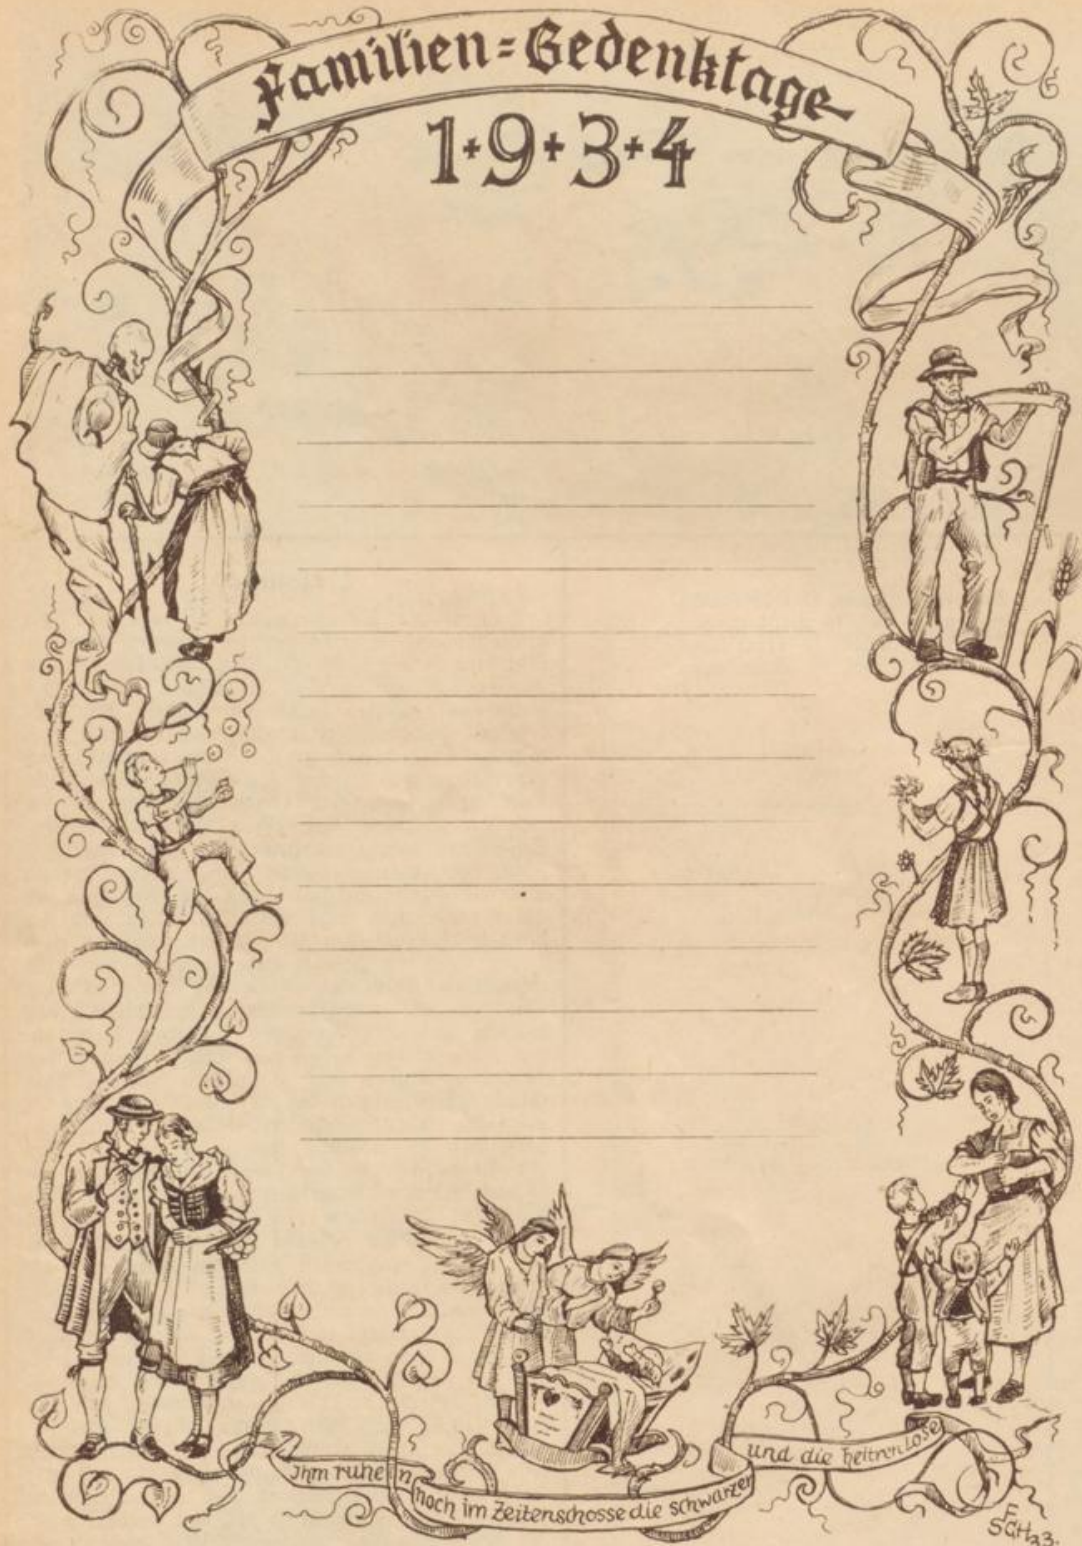 Familien=Gedenktage
1·9·3·4
Ihm ruhen
noch im Zeitenschosse die schwarzen
und die heitren Lose
F.
SCH 33.